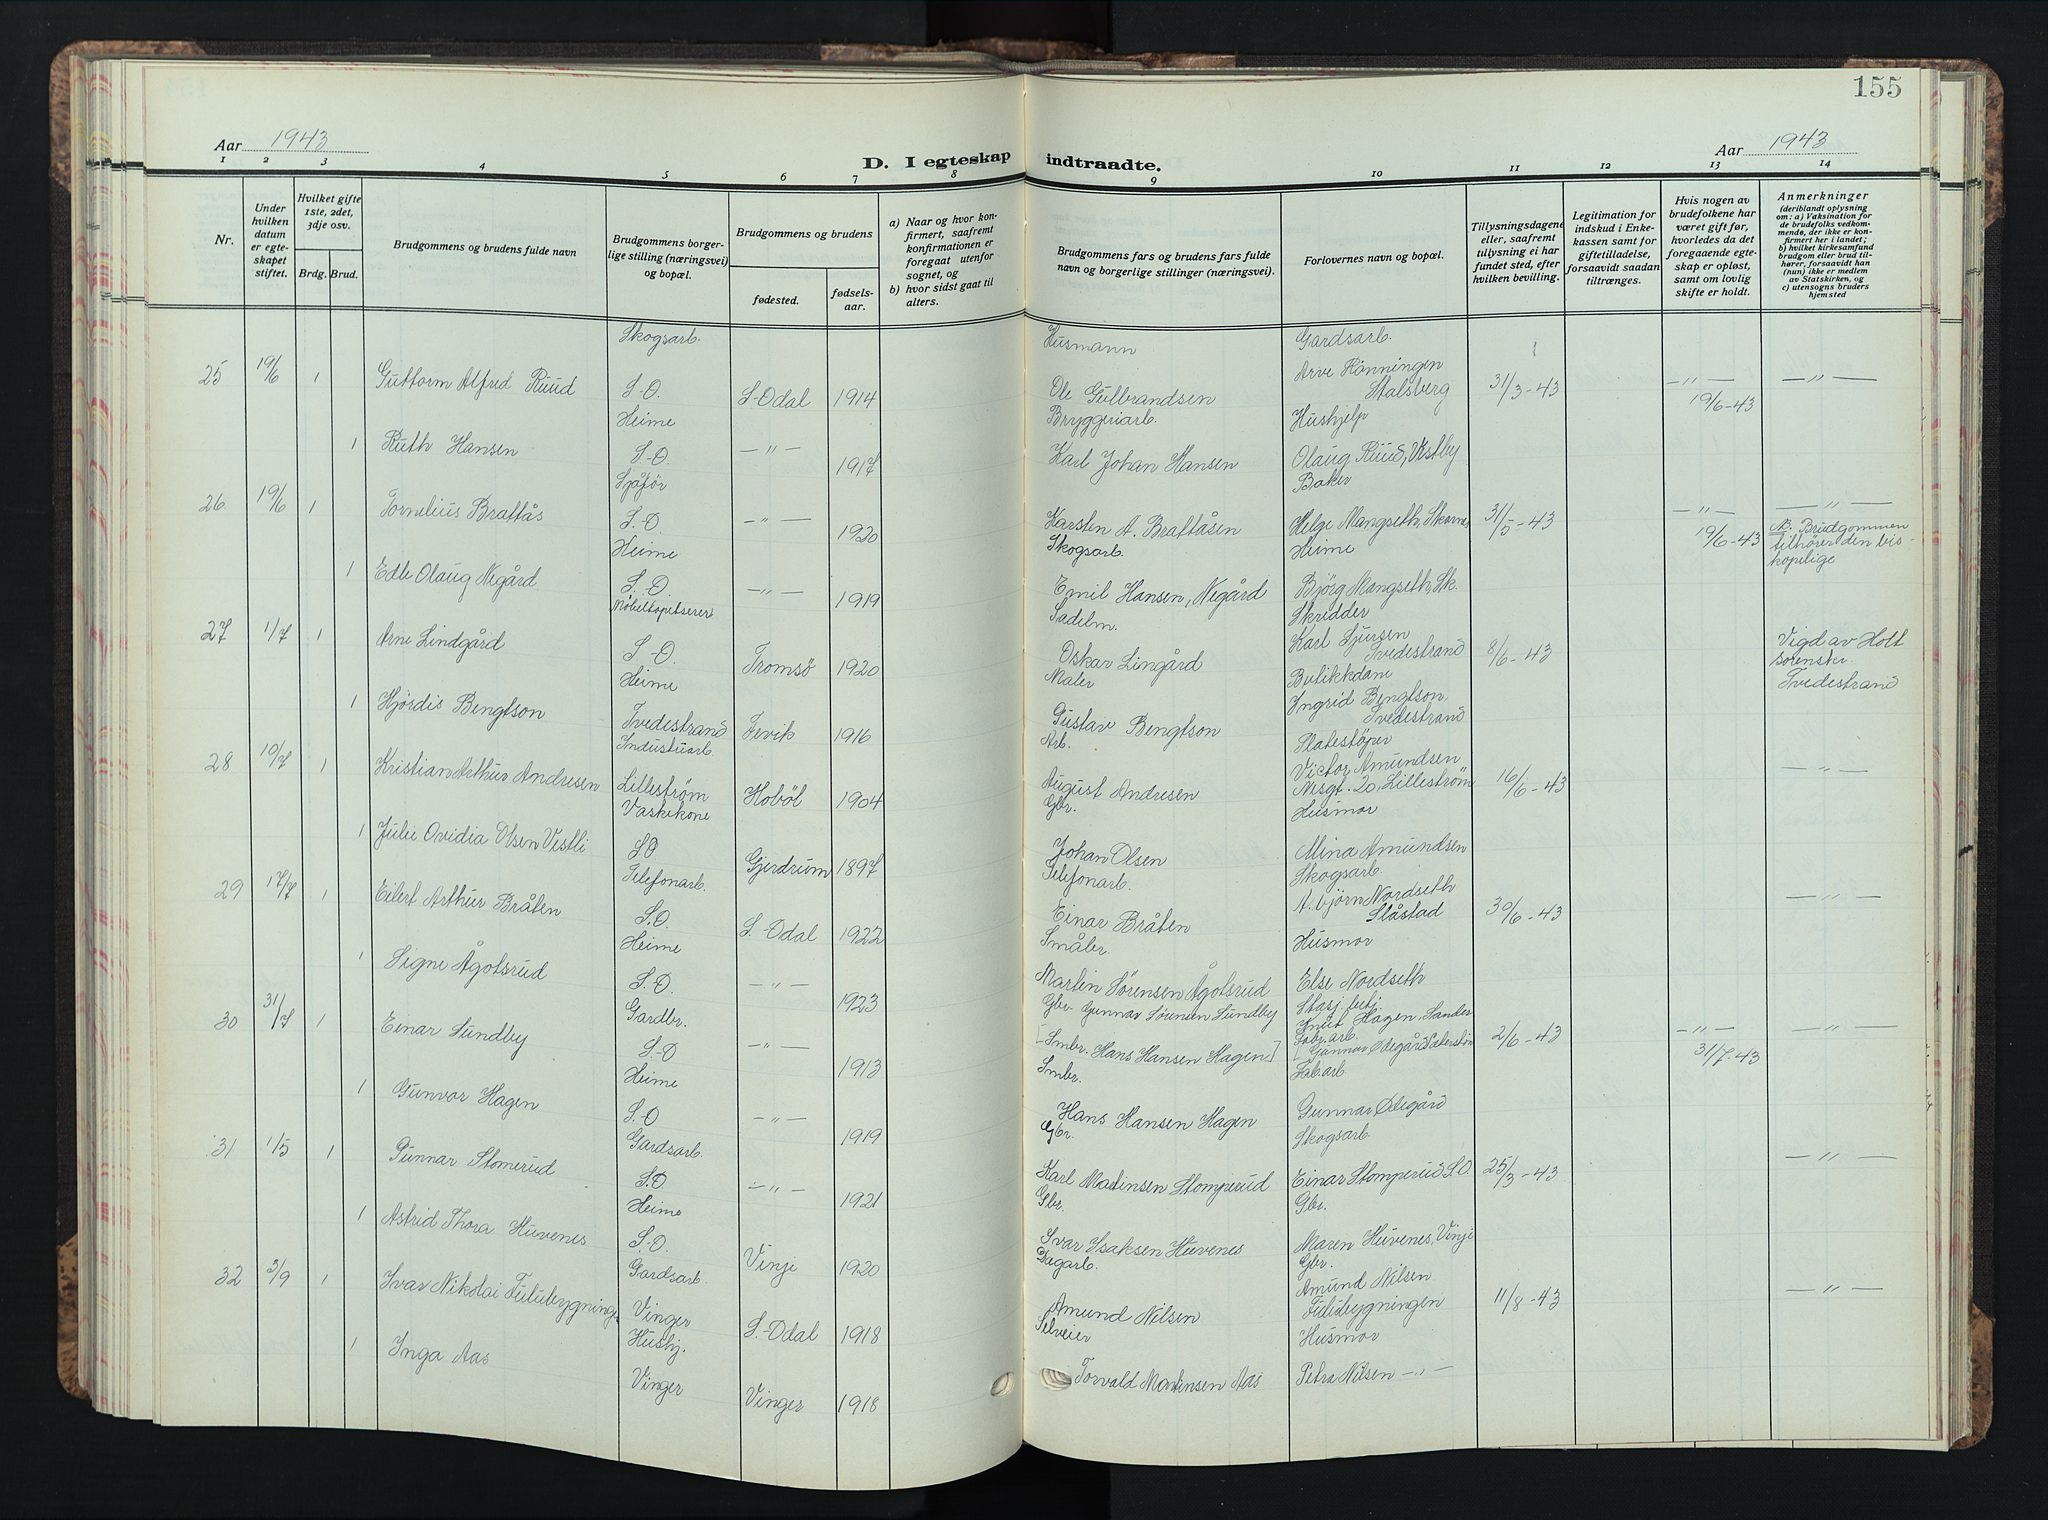 155
Aar 1943
D. I egteskap indtraadte.
Aar 1943
1 2 3 4 5 6 7 8 9 10 11 12 13 14
Nr.
Under hvilken datum er egteskapet stiftet.
Hvilket gifte 1ste, 2det, 3dje osv.
Brdg. Brud.
Brudgommens og brudens fulde navn
Brudgommens borgerlige stilling (næringsvei) og bopæl.
Brudgommens og brudens
fødested.
fødselsaar.
a) Naar og hvor konfirmert, saafremt konfirmationen er foregaat utenfor sognet, og
b) hvor sidst gaat til alters.
Brudgommens fars og brudens fars fulde navn og borgerlige stillinger (næringsvei).
Forlovernes navn og bopæl.
Tillysningsdagene eller, saafremt tillysning ei har fundet sted, efter hvilken bevilling.
Legitimation for indskud i Enkekassen samt for giftetilladelse, forsaavidt saadan tiltrænges.
Hvis nogen av brudefolkene har været gift før, hvorledes da det foregaaende egteskap er opløst, samt om lovlig skifte er holdt.
Anmerkninger
(deriblandt oplysning om: a) Vaksination for de brudefolks vedkommende, der ikke er konfirmert her i landet; b) hvilket kirkesamfund brudgom eller brud tilhører, forsaavidt han (hun) ikke er medlem av Statskirken, og c) utensogns bruders hjemsted
Skogsarb. Husmann Gardsarb.
25 19/6 1 Guttorm Alfred Ruud S-O. S-Odal 1914 Ole Gulbrandsen Arve Hönningen Stalsberg 31/3-43 —"— 19/6-43 —"—
Heime Bryggeriarb. Hushjelp
1 Ruth Hansen S-O. —"— 1917 Karl Johan Hansen Olaug Ruud, Vestby
Sjåfør Baker
26 19/6 1 Tornelius Bråttås S.-O —"— 1920 Karsten A. Bråttåsen Helge Mangseth, Skarnes 31/5-43 —"— 19/6-43 —"— NB. Brudgommen tilhører den biskopelige
Heime Skogsarb. Heime
1 Edle Olaug Negård S.-O. —"— 1919 Emil Hansen, Negård Bjørg Mangseth, Sk.
Møbeltapetserer Sadelm. Skredder
27 1/7 1 Arne Lindgård S-O. Tromsö 1920 Oskar Lingård Karl Sjursen Tvedestrand 8/6-43 Vigd av Holt sorenskr. Tvedestrand
Heime Maler Butikkdame
1 Hjördis Bengtson Tvedestrand Fevik 1916 Gustav Bengtson Ingrid Bengtson Tvedestrand
Industriarb Arb. Platestöper
28 10/7 1 Kristian Arthur Andresen Lilleström Hobøl 1904 August Andresen Victor Amundsen Nisgt. 20, Lilleström 16/6-43 —"—
Vaskekone Gbr. Husmor
1 Julie Ovidia Olsen Vestli SO Gjerdrum 1897 Johan Olsen Mina Amundsen
Telefonarb. Telefonarb. Skogsarb
29 17/7 1 Eilert Arthur Bråten S.O. S.-Odal 1922 Einar Bråten Asbjørn Nordseth Slåstad 30/6-43 —"—
Heime Småbr. Husmor
1 Signe Ågotsrud S.-O. —"— 1923 Martin Sörensen Ågotsrud Else Nordseth
Gardbr. Gbr. Gunnar Sörensen Sundby Stasj.betj.
30 31/7 1 Einar Sundby S-O —"— 1913 [Smbr. Hans Hansen Hagen] Knut Hagen, Sander Fabr.arb. [Gunnar Ødegård 2/6-43 —"— 31/7-43 —"—
Heime Smbr. Fab.arb
1 Gunvor Hagen S.-O —"— 1919 Hans Hansen Hagen Gunnar Ødegård
Gardsarb. Gbr. Skogsarb
31 1/5 1 Gunnar Stomerud S.O —"— 1921 Karl Martinsen Stomperud Einar Stomperud S.O. 25/3-43 —"—
Heime Gbr. Gbr.
1 Astrid Thora Huvenes S.-O. Vinje 1920 Ivar Isaksen Huvenes Maren Huvenes, Vinje
Gardsarb. Dagarb. Gbr.
32 3/9 1 Ivar Nikolai Fulubygningen Vinger S.-Odal 1918 Amund Nilsen Amund Nilsen Fulubygningen 11/8-43 —"—
Hushj. Selveier Husmor
1 Inga Aas Vinger Vinger 1918 Torvald Martinsen Aas Petra Nilsen —"—